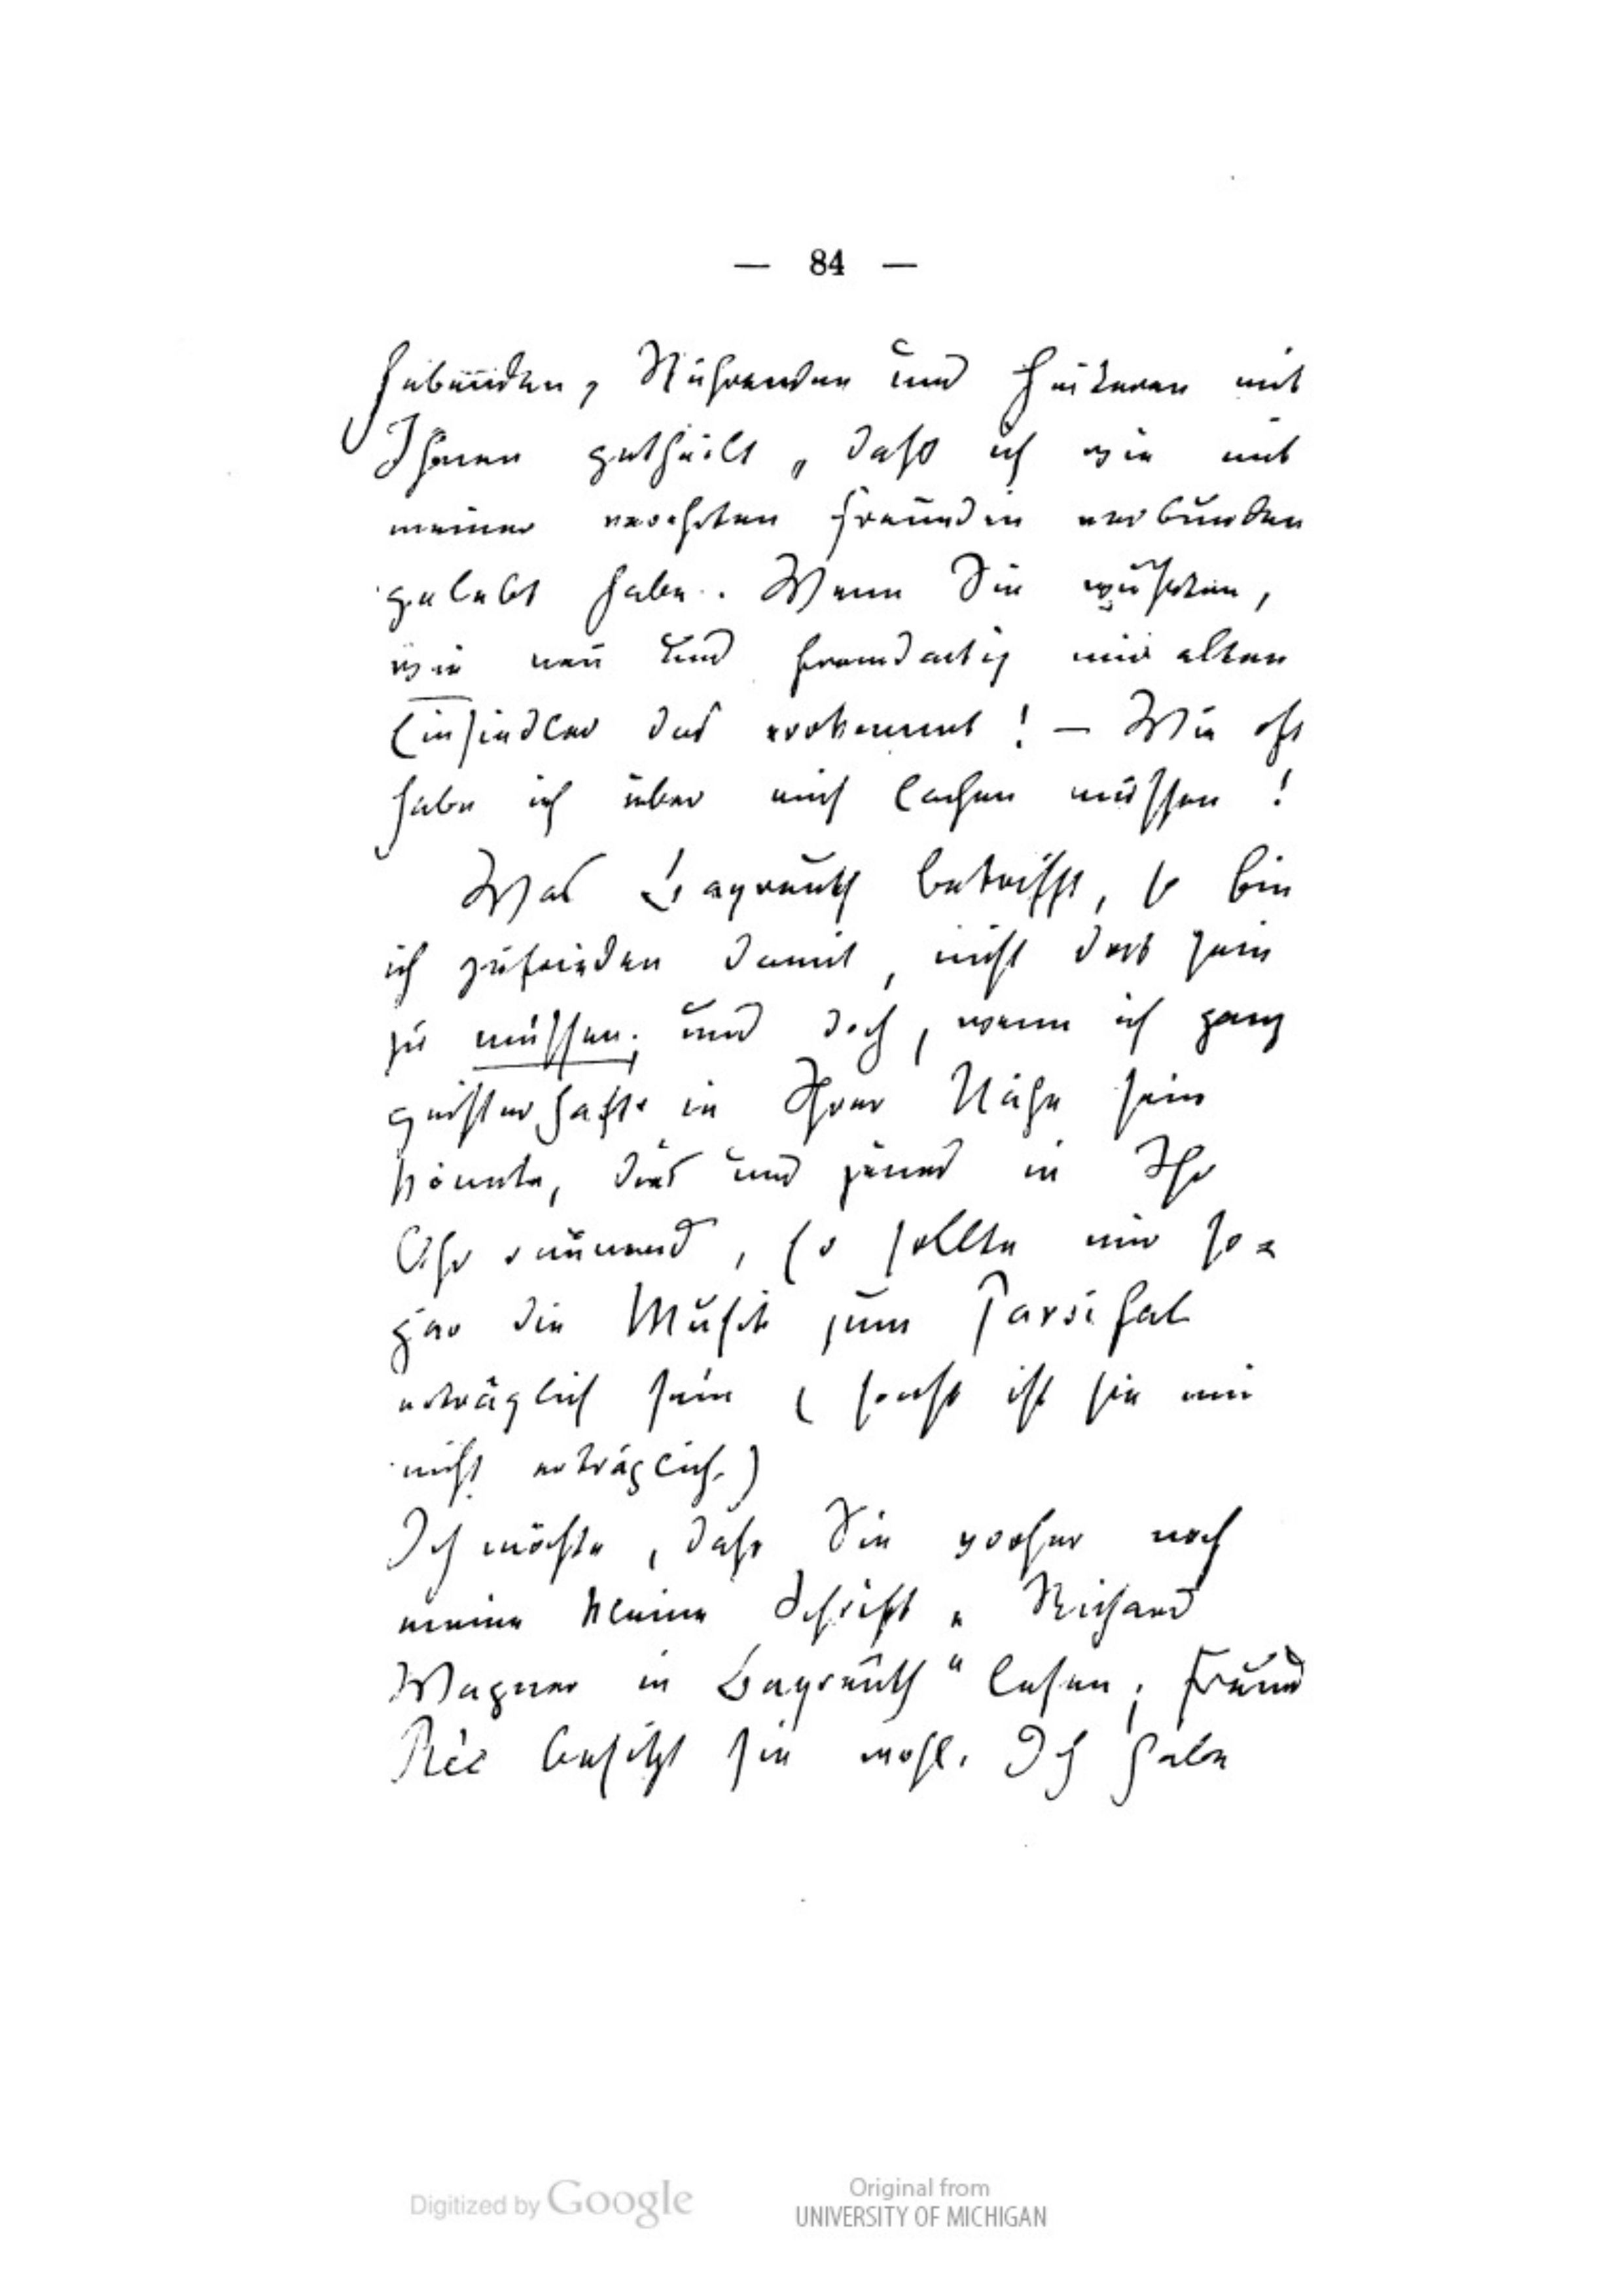 — 84 —
hebenden, Rührenden und Heiteren mit
Ihnen getheilt, daß ich wie mit
meiner verehrten Freundin verbunden
gelebt habe. Wenn Sie wüßten,
wie neu und fremdartig mir alten
Einsiedler das vorkommt! — Wie oft
habe ich über mich lachen müssen!
Was Bayreuth betrifft, so bin
ich zufrieden damit, nicht dort sein
zu müssen; und doch, wenn ich ganz
geisterhaft in Ihrer Nähe sein
könnte, dies und jenes in Ihr
Ohr raunend, so sollte mir so=
gar die Musik zum Parsifal
erträglich sein (sonst ist sie mir
nicht erträglich.)
Ich möchte, daß Sie vorher noch
meine kleine Schrift „Richard
Wagner in Bayreuth“ lesen; Freund
Rée besitzt sie wohl. Ich habe
Digitized by Google
Original from
UNIVERSITY OF MICHIGAN